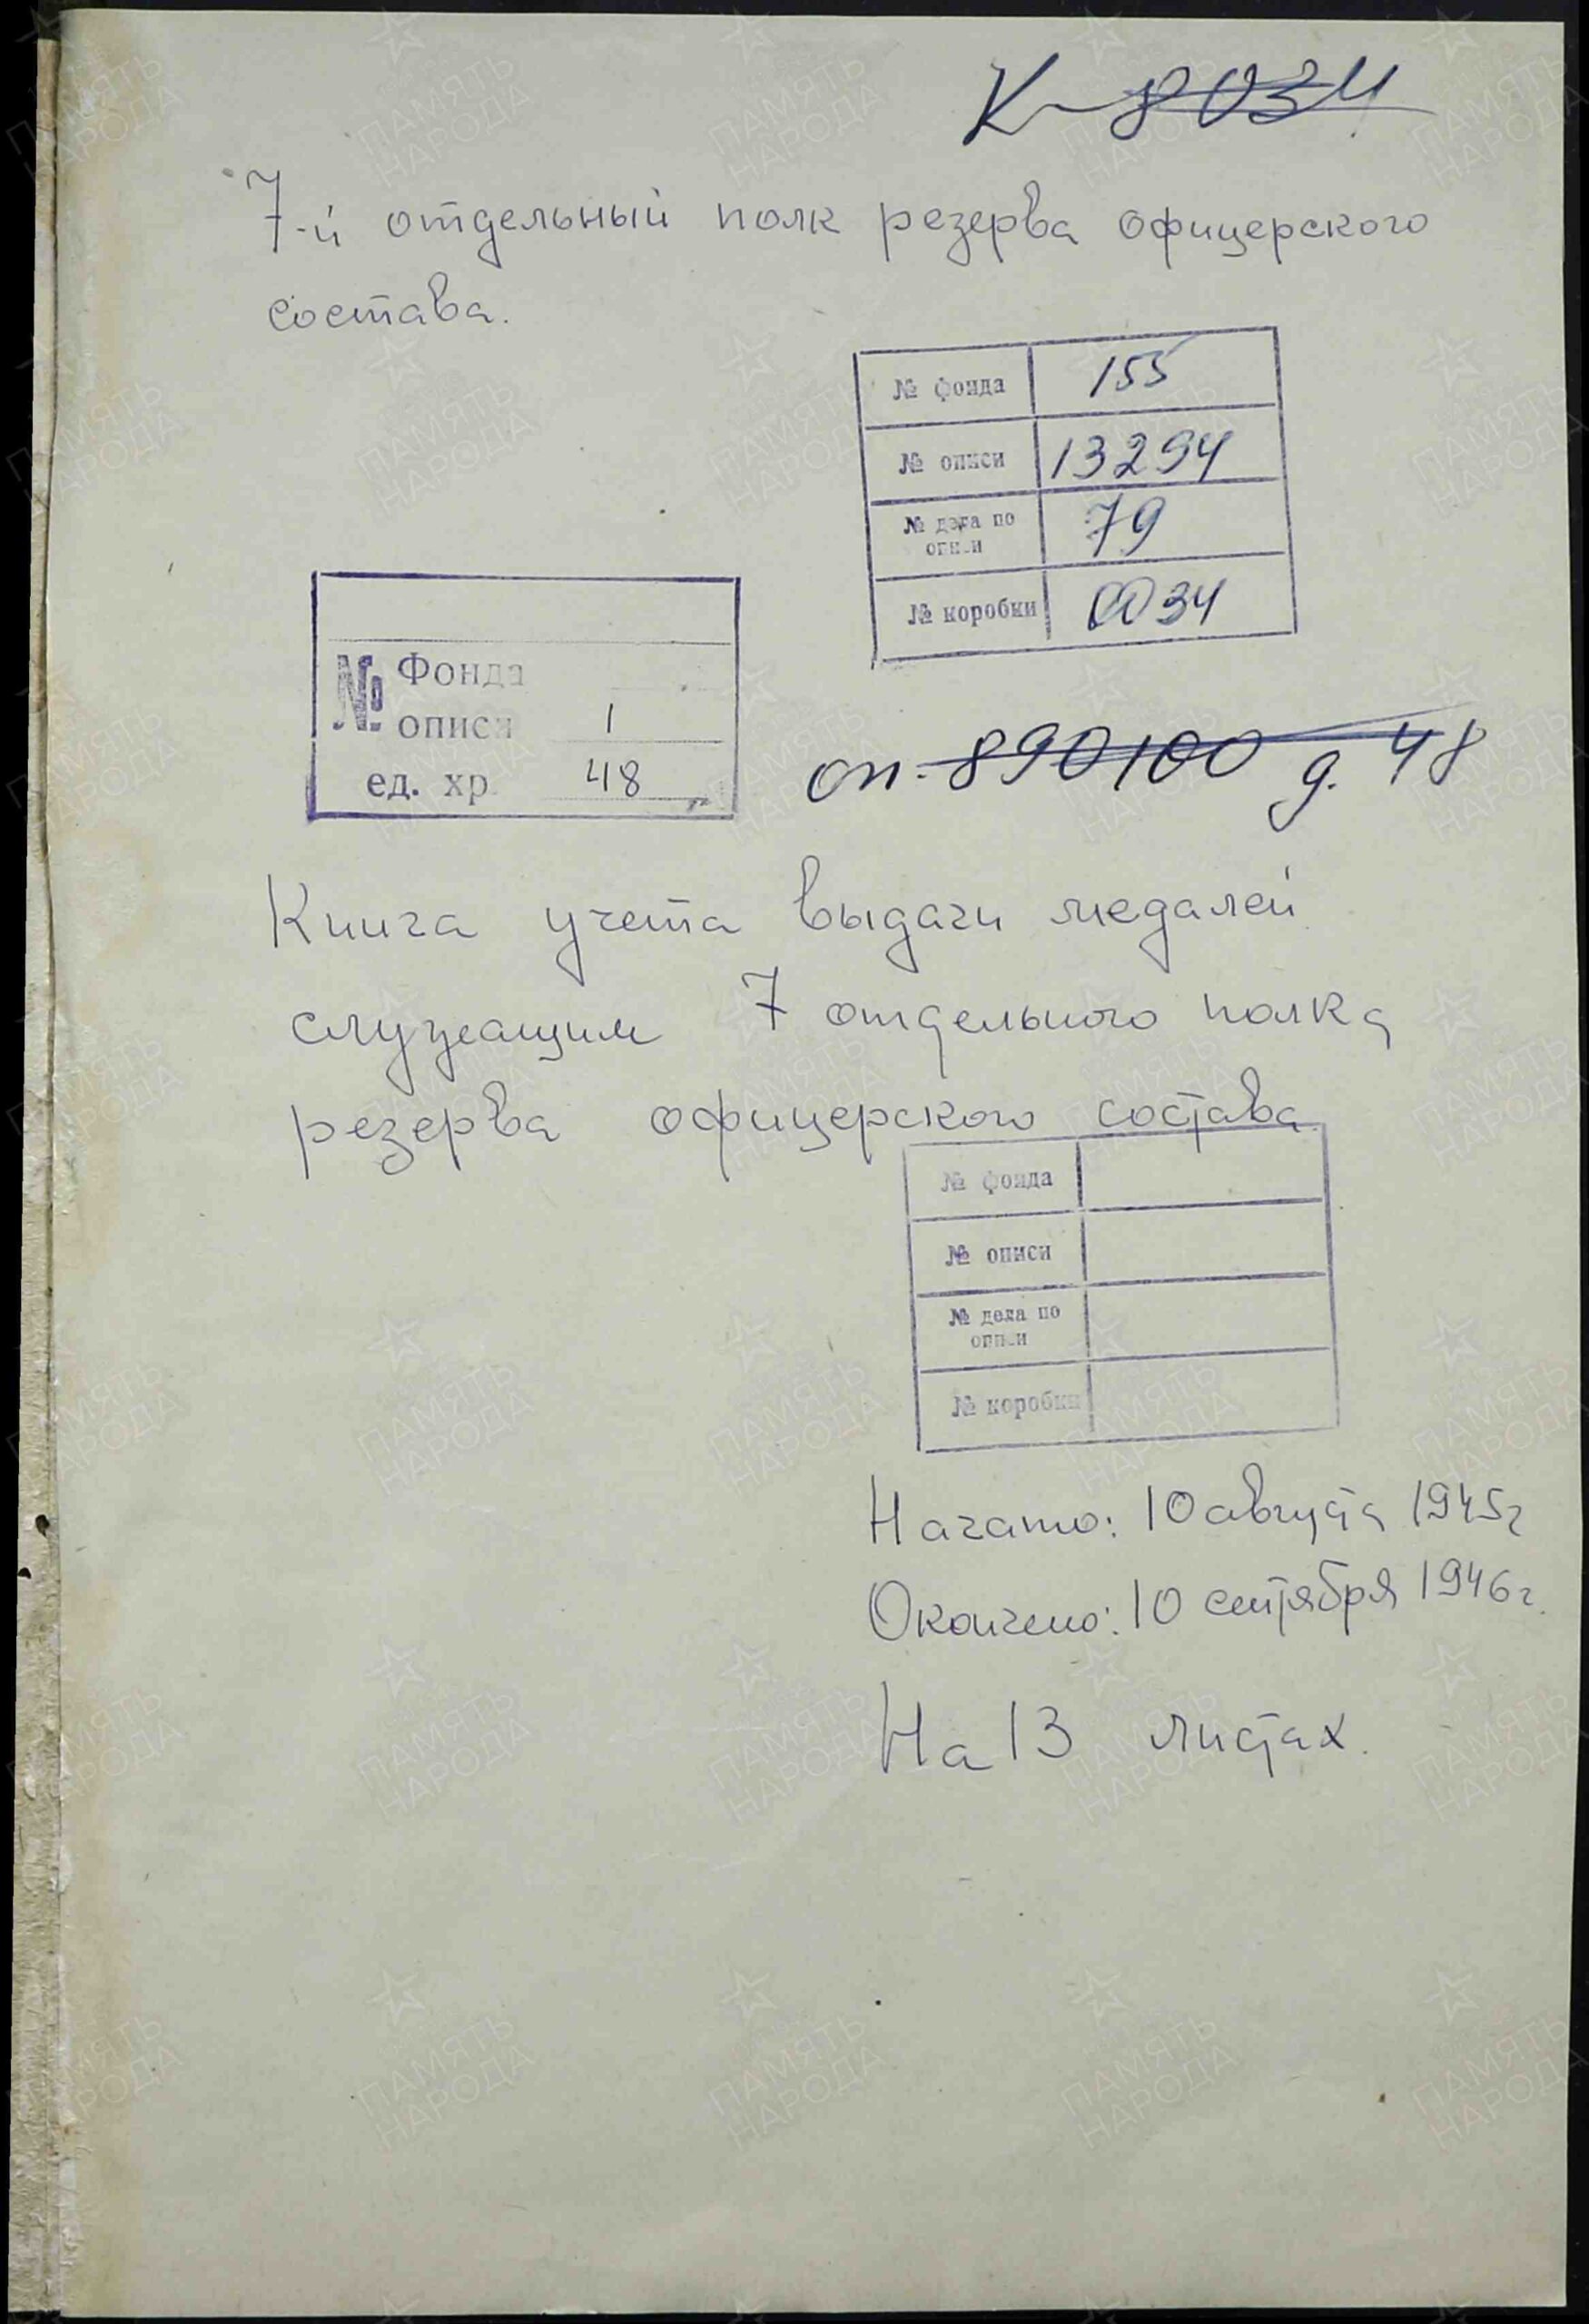 К-8034
7-й отдельный полк резерва офицерского
состава.
№ фонда 155
№ описи 13294
№ дела по описи 79
№ коробки 0034
№ Фонда
описи 1
ед. хр. 48
оп. 890100 д. 48
Книга учета выдачи медалей
служащим 7 отдельного полка
резерва офицерского состава.
№ фонда
№ описи
№ дела по описи
№ коробки
Начато: 10 августа 1945г
Окончено: 10 сентября 1946г.
На 13 листах.
ПАМЯТЬ НАРОДА